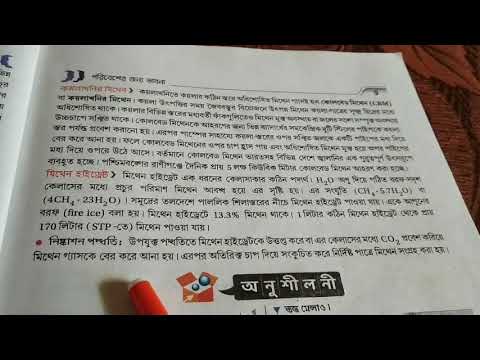 পরিবেশের জন্য ভাবনা
কয়লাখনির মিথেন ▷ কয়লাখনিতে কয়লার কঠিন স্তরে অধিশোষিত মিথেন গ্যাসই হল কোলবেড মিথেন (CBM)
বা কয়লাখনির মিথেন। কয়লা উৎপত্তির সময় জৈববস্তুর বিয়োজনে উৎপন্ন মিথেন কয়লা-পাত্রের সূক্ষ্ম ছিদ্রের মধ্যে
অধিশোষিত থাকে। কয়লার বিভিন্ন স্তরের মধ্যবর্তী ফাঁকগুলিতেও মিথেন মুক্ত অবস্থায় বা জলের সঙ্গে সম্পৃক্ত অবস্থায়
উচ্চচাপে সঞ্চিত থাকে। কোলবেড মিথেনকে আহরণের জন্য ভিন্ন ব্যাসার্ধের সমকেন্দ্রিক দুটি স্টিলের পাইপকে কয়লা
স্তর পর্যন্ত প্রবেশ করানো হয়। এরপর পাম্পের সাহায্যে কয়লার স্তরে ওপরে সঞ্চিত জলকে একটি পাইপের মধ্য দিয়ে
বের করে আনা হয়। ফলে কোলবেড মিথেনের ওপর চাপ হ্রাস পায় এবং অধিশোষিত মিথেন মুক্ত হয়ে অপর পাইপের
মধ্য দিয়ে ওপরে উঠে আসে। বর্তমানে কোলবেড মিথেন ভারতসহ বিভিন্ন দেশে জ্বালানির এক গুরুত্বপূর্ণ উৎসরূপে
ব্যবহৃত হচ্ছে। পশ্চিমবঙ্গের রাণীগঞ্জে দৈনিক প্রায় 5 লক্ষ কিউবিক মিটার কোলবেড মিথেন আহরণ করা হচ্ছে।
মিথেন হাইড্রেট ▷ মিথেন হাইড্রেট এক ধরনের কেলাসাকার কঠিন পদার্থ। H₂O অণু দিয়ে গঠিত বরফ সদৃশ
কেলাসের মধ্যে প্রচুর পরিমাণ মিথেন আবদ্ধ হয়ে এর সৃষ্টি হয়। এর সংযুতি (CH₄·5.7H₂O) বা
(4CH₄·23H₂O)। সমুদ্রের তলদেশে পাললিক শিলাস্তরের নীচে মিথেন হাইড্রেট পাওয়া যায়। একে আগুনের
বরফ (fire ice) বলা হয়। মিথেন হাইড্রেটে 13.3% মিথেন থাকে। 1 লিটার কঠিন মিথেন হাইড্রেট থেকে প্রায়
170 লিটার (STP -তে) মিথেন পাওয়া যায়।
• নিষ্কাশন পদ্ধতি: উপযুক্ত পদ্ধতিতে মিথেন হাইড্রেটকে উত্তপ্ত করে বা এর কেলাসের মধ্যে CO₂ প্রবেশ করিয়ে
মিথেন গ্যাসকে বের করে আনা হয়। এরপর অতিরিক্ত চাপ দিয়ে সংকুচিত করে নির্দিষ্ট পাত্রে মিথেন সংগ্রহ করা হয়।
অনুশীলনী
স্তম্ভ মেলাও।